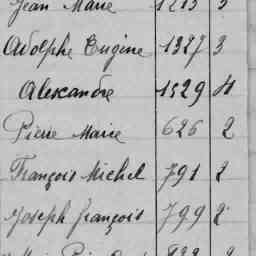 Jean Marie 1213 3
Adolphe Eugène 1327 3
Alexandre 1529 4
Pierre Marie 626 2
François Michel 791 2
Joseph François 799 2